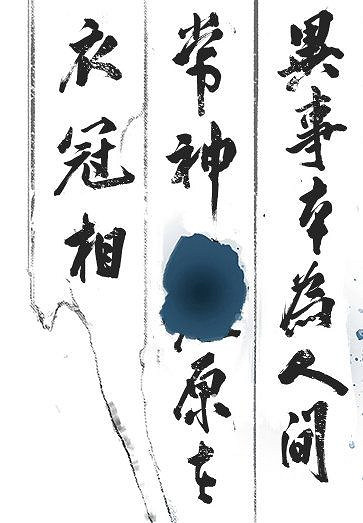 異事本為人間
常神原在
衣冠相